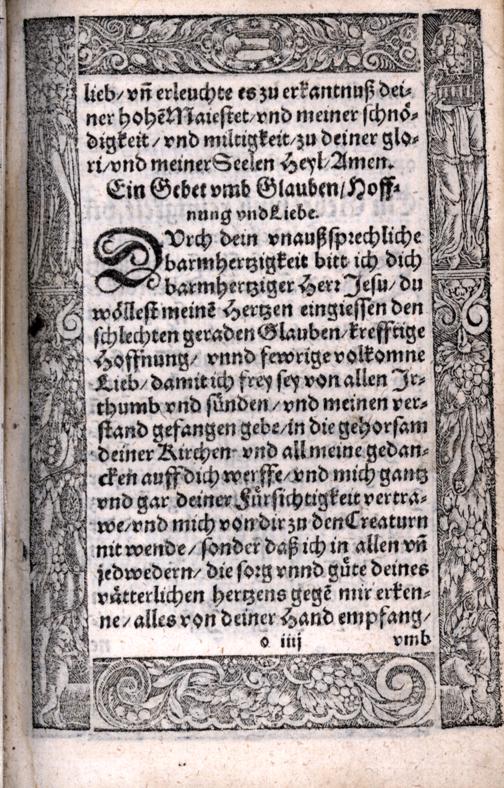 lieb/ vñ erleuchte es zu erkantnuß dei⸗
ner hohẽ Maiestet/ vnd meiner schnö⸗
digkeit/ vnd miltigkeit/ zu deiner glo⸗
ri/ vnd meiner Seelen Heyl/ Amen.
Ein Gebet vmb Glauben/ Hoff⸗
nung vnd Liebe.
DVrch dein vnaußsprechliche
barmhertzigkeit bitt ich dich
barmhertziger Herr Jesu/ du
wöllest meinẽ Hertzen eingiessen den
schlechten geraden Glauben/ krefftige
Hoffnung/ vnnd fewrige volkomne
Lieb/ damit ich frey sey von allen Jr⸗
thumb vnd sünden/ vnd meinen ver⸗
stand gefangen gebe/ in die gehorsam
deiner Kirchen vnd all meine gedan⸗
cken auff dich werffe/ vnd mich gantz
vnd gar deiner Fürsichtigkeit vertra⸗
we/ vnd mich von dir zu den Creaturn
nit wende/ sonder daß ich in allen vñ
jedwedern/ die sorg vnnd güte deines
vätterlichen hertzens gegẽ mir erken⸗
ne/ alles von deiner Hand empfang/
o iiij vmb